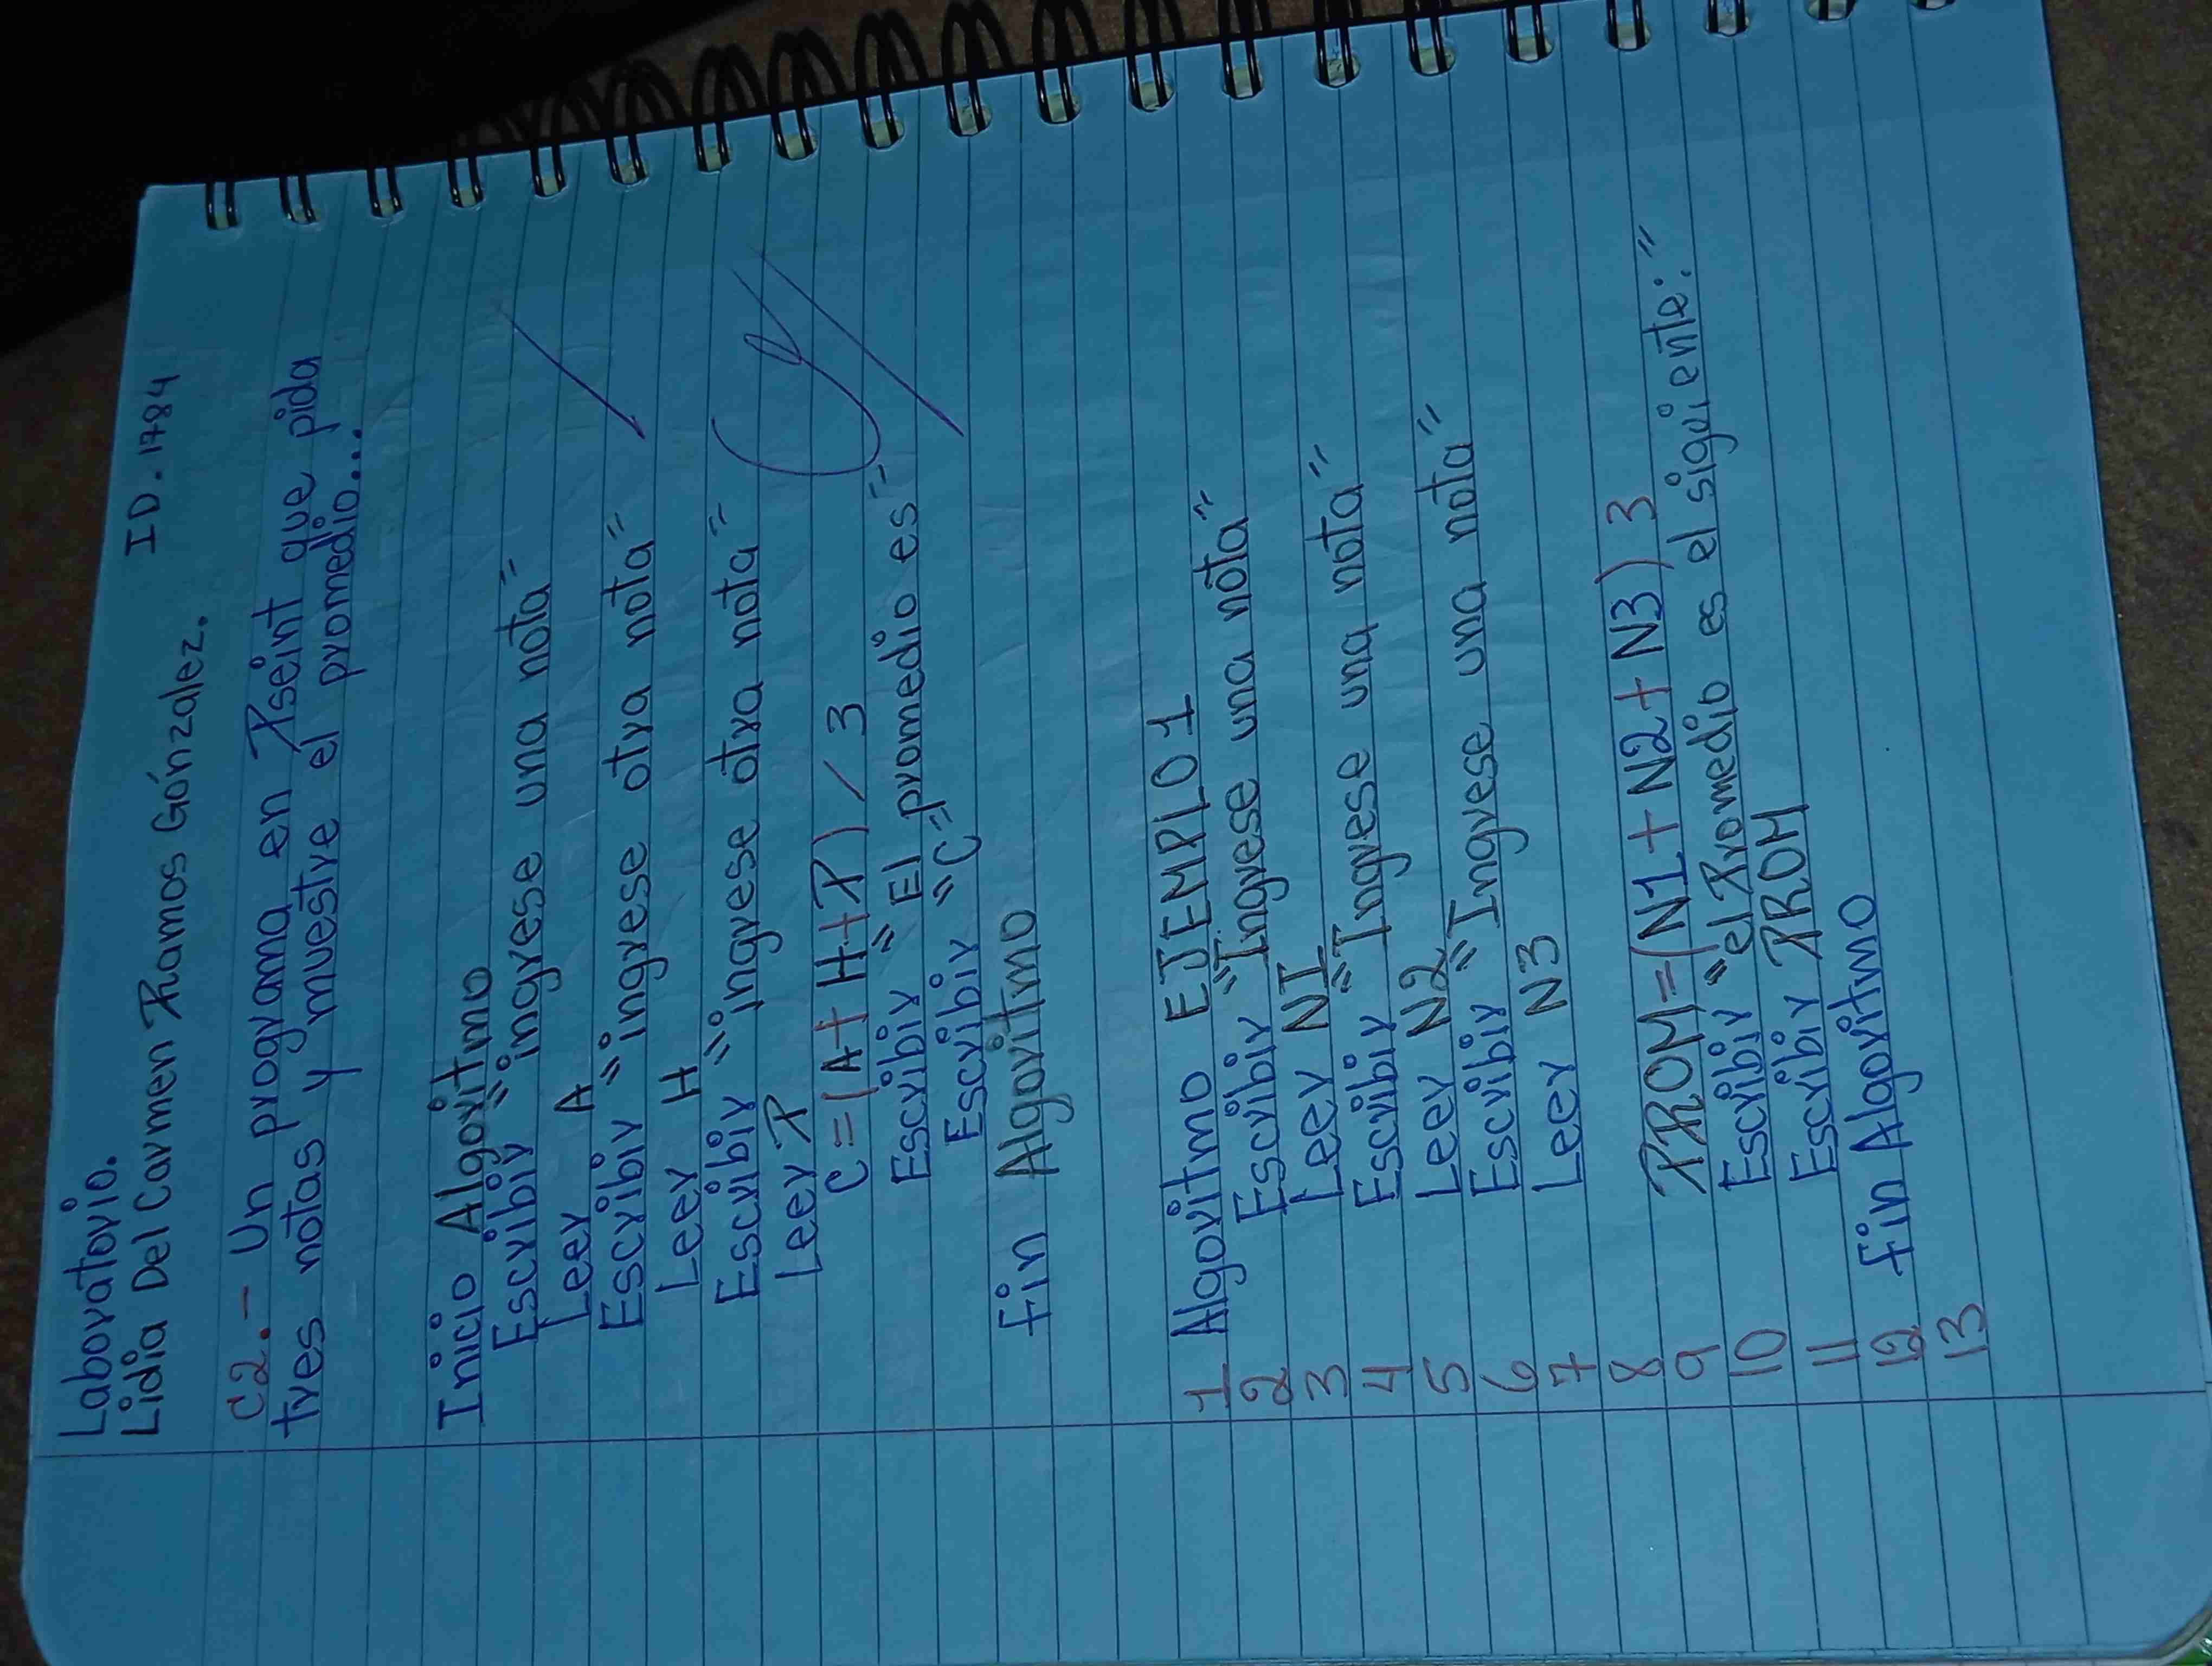 Laboratorio.
Lidia Del Carmen Ramos Gónzalez. ID. 1784
C2.- Un programa en Pseint que pida
tres notas y muestre el promedio...
Inicio Algoritmo
Escribir "ingrese una nota"
Leer A
Escribir "ingrese otra nota"
Leer H
Escribir "ingrese otra nota"
Leer P
C=(A+H+P)/3
Escribir "El promedio es"
Escribir "C="
Fin Algoritmo
1 Algoritmo EJEMPLO1
2 Escribir "Ingrese una nota"
3 Leer N1
4 Escribir "Ingrese una nota"
5 Leer N2
6 Escribir "Ingrese una nota"
7 Leer N3
8
9 PROM=(N1+N2+N3) 3
10 Escribir "el Promedio es el siguiente:"
11 Escribir PROM
12 Fin Algoritmo
13